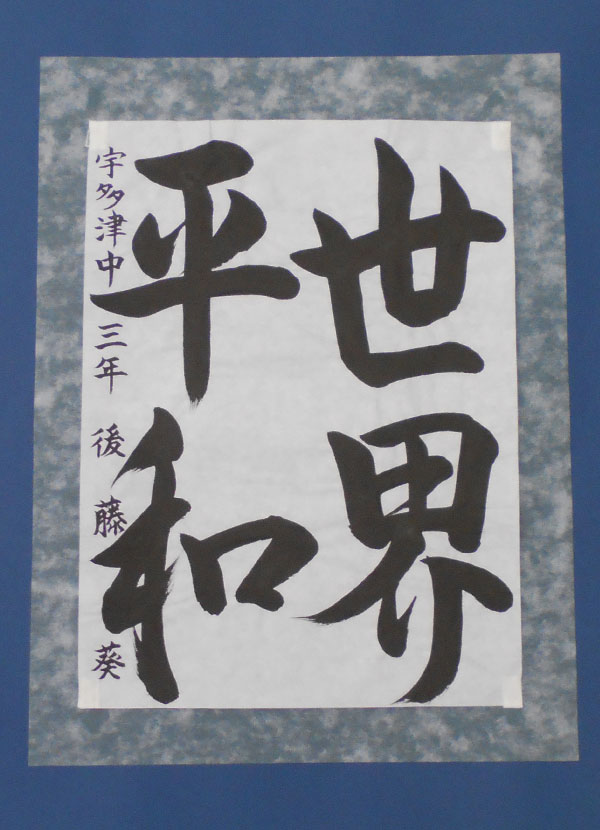 世界
平和
宇多津中 三年 後藤 葵